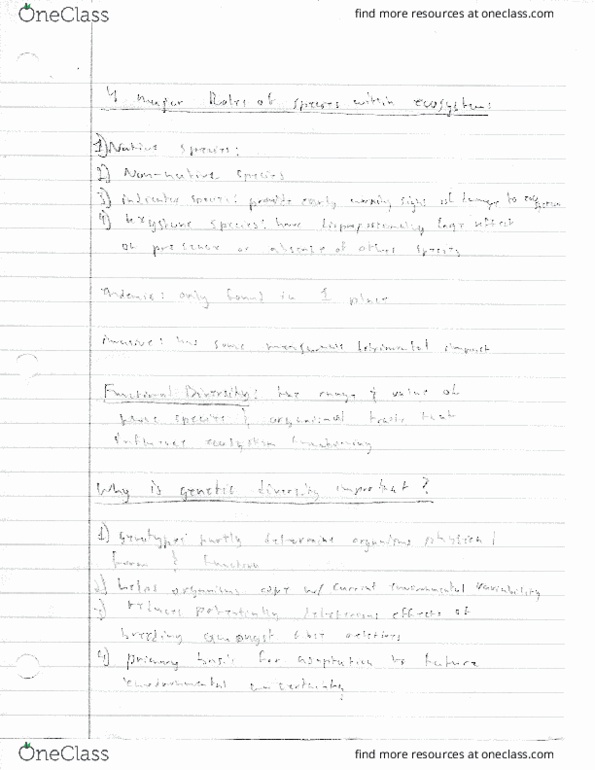 OneClass
find more resources at oneclass.com
4 major Roles of species within ecosystems
1) Native species:
2) Non-native species
3) indicator species: provide early warning sighs of damage to
4) keystone species: have effect
on presence or absence of other species
endemic: only found in 1 place
invasive: has some detrimental impact
Functional Diversity: the range & value of
species & organismal traits that
influence ecosystem functioning
Why is genetic diversity important?
1) Genotypes partly determine organisms physical
form & function
2) helps organisms cope w/ current environmental variability
3) reduces potentially deleterious effects of
breeding amongst close relatives
4) primary basis for adaptation to future
environmental uncertainty
OneClass
find more resources at oneclass.com